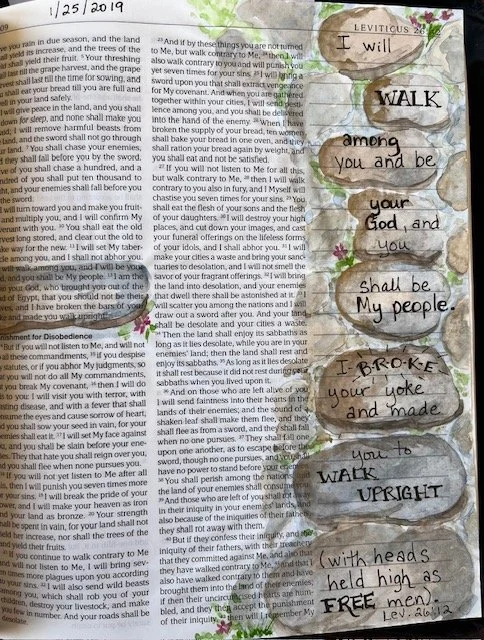 1/25/2019
09
LEVITICUS 26
ve you rain in due season, and the land
ll yield its increase, and the trees of the
ld shall yield their fruit. 5 Your threshing
all last till the grape harvest, and the grape
rvest shall last till the time for sowing, and
u shall eat your bread till you are full and
ell in your land safely.
will give peace in the land, and you shall
down for sleep, and none shall make you
aid; I will remove harmful beasts from
land, and the sword shall not go through
r land. 7 You shall chase your enemies,
they shall fall before you by the sword.
ve of you shall chase a hundred, and a
ndred of you shall put ten thousand to
ht, and your enemies shall fall before you
the sword.
will turn toward you and make you fruit-
and multiply you, and will confirm My
venant with you. 10 You shall eat the old
rvest long stored, and clear out the old to
ke way for the new. 11 I will set My taber-
cle among you, and I shall not abhor you.
will walk among you, and I will be your
d, and you shall be My people. 13 I am the
your God, who brought you out of the
d of Egypt, that you should not be their
ves, and I have broken the bars of your
ke and made you walk upright.
nishment for Disobedience
if you will not listen to Me, and will not
all these commandments, 15 if you despise
statutes, or if you abhor My judgments, so
t you will not do all My commandments,
you break My covenant, 16 then I will do
to you: I will visit you with terror, with
sting disease, and with a fever that shall
sume the eyes and cause sorrow of heart;
you shall sow your seed in vain, for your
emies shall eat it. 17 I will set My face against
and you shall be slain before your ene-
es. They that hate you shall reign over you,
nd you shall flee when none pursues you.
If you will not yet listen to Me after all
s, then I will punish you seven times more
your sins. 19 I will break the pride of your
wer, and I will make your heaven as iron
nd your land as bronze. 20 Your strength
all be spent in vain, for your land shall not
eld her increase, nor shall the trees of the
nd yield their fruits.
If you continue to walk contrary to Me
nd will not listen to Me, I will bring sev-
n times more plagues upon you according
o your sins. 22 I will also send wild beasts
mong you, which shall rob you of your
hildren, destroy your livestock, and make
you few in number. And your roads shall be
desolate.
23 And if by these things you are not turned
to Me, but walk contrary to Me, 24 then I will
also walk contrary to you and will punish you
yet seven times for your sins. 25 I will bring a
sword upon you that shall extract vengeance
for My covenant. And when you are gathered
together within your cities, I will send pesti-
lence among you, and you shall be delivered
into the hand of the enemy. 26 When I have
broken the supply of your bread, ten women
shall bake your bread in one oven, and they
shall ration your bread again by weight, and
you shall eat and not be satisfied.
27 If you will not listen to Me for all this,
but walk contrary to Me, 28 then I will walk
contrary to you also in fury, and I Myself will
chastise you seven times for your sins. 29 You
shall eat the flesh of your sons and the flesh
of your daughters. 30 I will destroy your high
places, and cut down your images, and cast
your funeral offerings on the lifeless forms
of your idols, and I shall abhor you. 31 I will
make your cities a waste and bring your sanc-
tuaries to desolation, and I will not smell the
savor of your fragrant offerings. 32 I will bring
the land into desolation, and your enemies
that dwell there shall be astonished at it. 33 I
will scatter you among the nations and I will
draw out a sword after you. And your land
shall be desolate and your cities a waste.
34 Then the land shall enjoy its sabbaths as
long as it lies desolate, while you are in your
enemies' land; then the land shall rest and
enjoy its sabbaths. 35 As long as it lies desolate
it shall rest because it did not rest during your
sabbaths when you lived upon it.
36 And on those who are left alive of you
I will send faintness into their hearts in the
lands of their enemies; and the sound of a
shaken leaf shall make them flee, and they
shall flee as from a sword, and they shall fall
when no one pursues. 37 They shall fall
upon one another, as to escape before the
sword, though no one pursues, and you shall
have no power to stand before your enemies.
38 You shall perish among the nations, and
the land of your enemies shall consume you.
39 And those who are left of you shall rot away
in their iniquity in your enemies' lands, and
also because of the iniquities of their fathers
they shall rot away with them.
40 But if they confess their iniquity, and the
iniquity of their fathers, with their treachery
that they committed against Me, and also that
they have walked contrary to Me, 41 and that I
also have walked contrary to them and have
brought them into the land of their enemies,
if then their uncircumcised hearts are hum-
bled, and they accept the punishment
of their iniquity, 42 then will I remember My
I will
WALK
among
you and be
your
God, and
you
shall be
My people
I B-R-O-K-E
your yoke
and made
you to
WALK
UPRIGHT
(with heads
held high as
FREE men).
Lev. 26:12